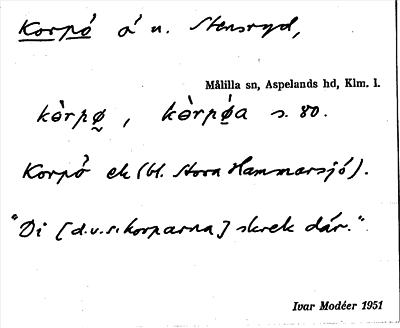 Korpö å n. Stensryd,
Målilla sn, Aspelands hd, Klm. l.
kòrpø̰, kòrpǿa s. 80.
Korpö ek (bl. Stora Hammarsjö).
"Di [d.v.s. korparna] skrek där."
Ivar Modéer 1951